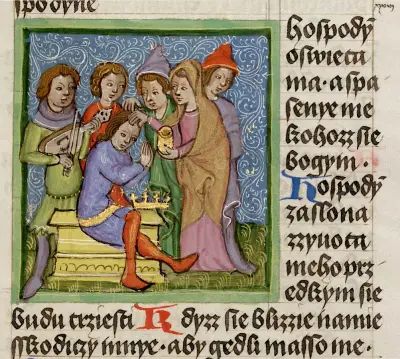 spodyne
hospodỹ
oswieta
ma · a spa
senye me
kohozz sie
bogym ·
Hospodỹ
zaslona
zzywota
meho prz
edkym sie
budu trziesti Kdyzz sie blizzie namie
sskodiczy mnye · aby gedli masso me ·